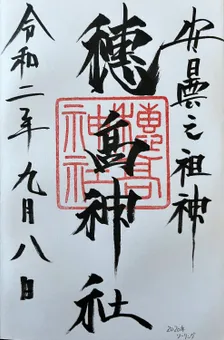 安曇之祖神
穂高神社
穂高神社
令和二年九月八日
2020年